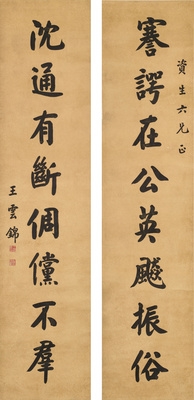 資生六兄正
謇諤在公英飚振俗
沈通有斷倜儻不羣
王雲錦